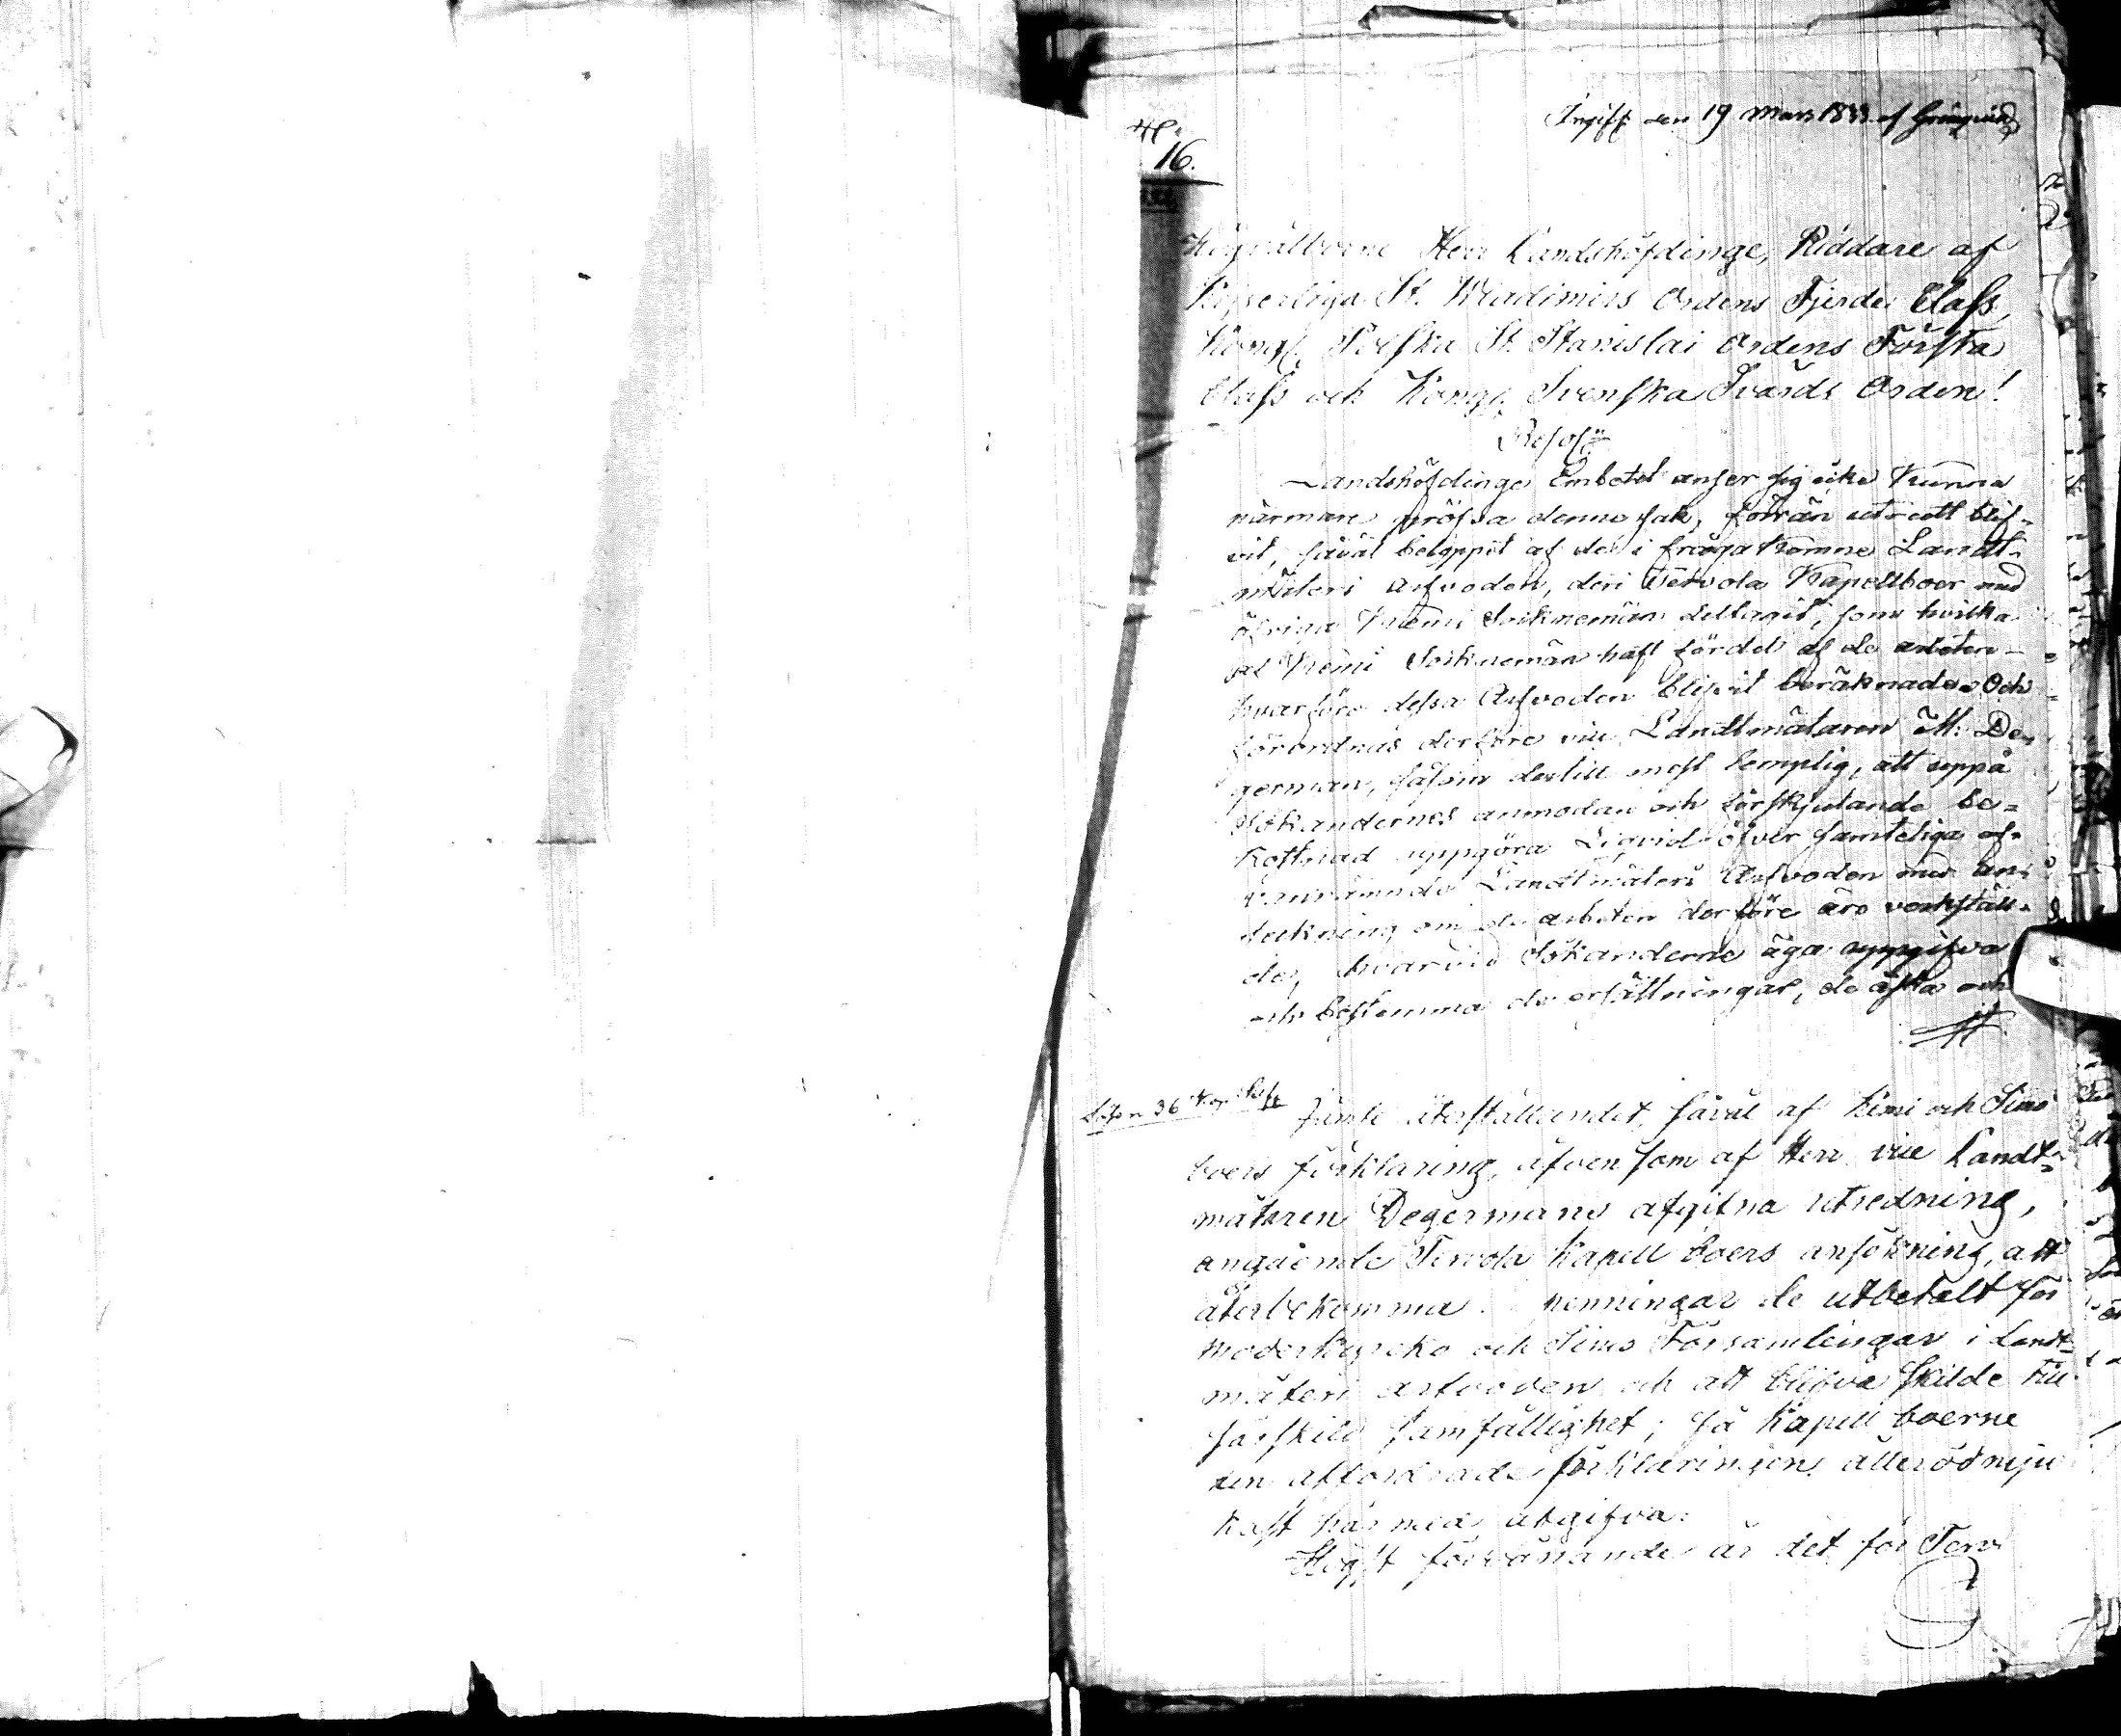 Ingift den 19 Mars 1833 af
16.
Högvälborne Herr Landshöfding, Riddare af
Kejserliga St. Wladimirs Ordens Fjerde Class,
Kongl. Polska St. Stanislai Ordens Första
Class och Kongl. Svenska Svärds Orden!
Resol:
Landshöfdinge Embetet anser sig icke kunna
närmare pröfva denne sak, förrän utredt blif-
vit, såväl beloppet af de i fråga komne Landt-
mäteri arfvoden, deri Tervola Kapellboer med
öfriga Kemi Socknemän deltagit, som hvilka
af Kemi Socknemän haft fördel af de arbeten
hvarföre dessa Arfvoden blifvit beräknade. Och
förordnas derföre vice Landtmätaren M. De-
german, såsom dertill mest lemplig, att uppå
Sökandernes anmodan och förskjutande be-
kostnad uppgöra Liqvid öfver samteliga of-
vannämnde Landtmäteri Arfvoden med an-
teckning om de arbeten derföre äro verkstäl-
de, hvarvid Sökanderne äga uppgifva
och bestemma de ersättningar, de äska och
Jemte återställandet, såväl af Kemi och Simo
boers förklaring, äfvensom af Herr vice Landt-
mätaren Degermans afgifna utredning,
angående Tervola Kapell boers ansökning, att
återbekomma penningar de utbetalt för
Moderkyrko och Simo Församlingar i Landt-
mäteri arfvoden och att blifva skilde till
särskild samfällighet; få Kapell boerne
den affordrade förklaringen allerödmju
kast härmed afgifva.
Högst förvånande är det för Terv